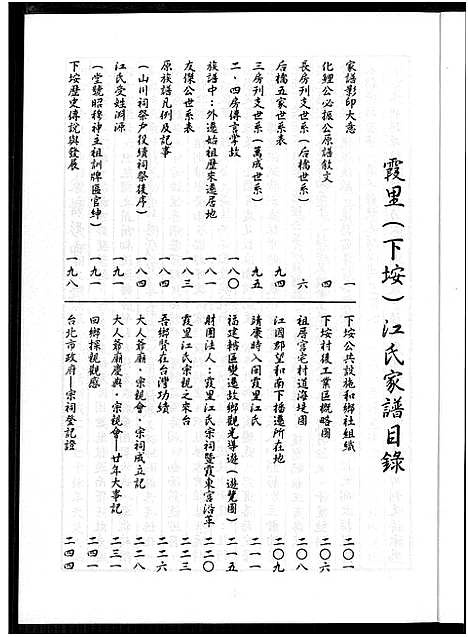 霞里（下垵）江氏家譜目錄
家譜影印大意 一
化鯉公必振公原譜敘文 四
長房列支世系（后橋世系） 六
后橋五家世系表 九四
三房列支世系（萬成世系） 九五
二．四房傳言學故 一八〇
族譜中：外遷始祖歷來遠居地 一八一
友傑公世系表 一八三
原族譜凡例及記事 一八四
（山川祠祭戶役續祠祭後序） 一八四
江氏受姓淵源 一九一
（堂號昭穆神主祖訓牌匾官紳） 一九一
下垵歷史傳說與發展 一九八
下垵公共設施和鄉社組織 二〇一
下垵村後工業區概略圖 二〇六
祖厝宮宅村道海境圖 二〇八
江國郡望和南下播遷所在地 二〇九
靖康時入閩霞里江氏 二一一
福建轄區變遷故鄉觀光導遊（遊覽圖） 二一五
財團法人：霞里江氏宗祠暨霞東宮沿革 二二〇
霞里江氏宗親之來台 二二三
吾鄉賢在台灣功績 二二六
大人爺廟．宗親會．宗祠成立記 二二八
大人爺廟慶典．宗親會—廿年大事記 二三一
回鄉探親觀感 二四一
台北市政府—宗祠登記證 二四四